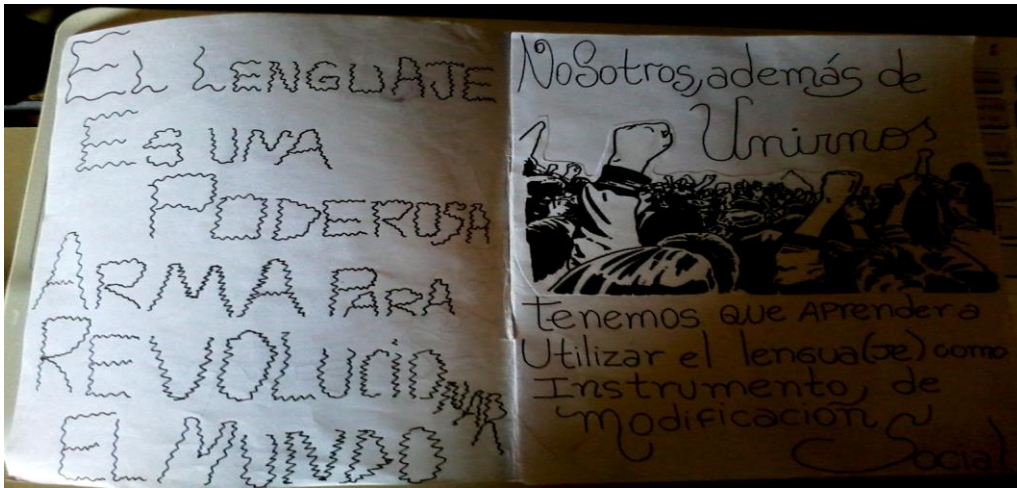 EL LENGUAJE
ES UNA
PODEROSA
ARMA PARA
REVOLUCIONAR
EL MUNDO
NoSotros, además de
Unirnos
tenemos QUE APrender a
Utilizar el lengua(je) como
Instrumento, de
modificación
Social